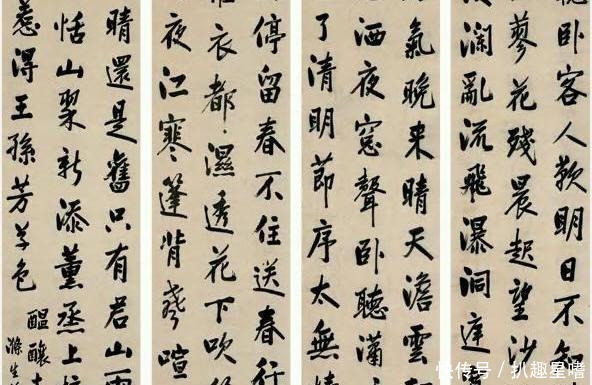 卧客人歎明日不知
蓼花殘晨起望沙
瀾亂流飛瀑洞庭
氣晚来晴天澹雲
洒夜窓聲卧聽瀟
了清明節序太無情
停留春不住送春行
衣都濕透花下吹
夜江寒篷背聲喧
晴還是舊只有君山雨
恬山翠新添薰烝上
惹得王孫芳草色
醞釀
滌生
快传号 / 扒趣星嗜